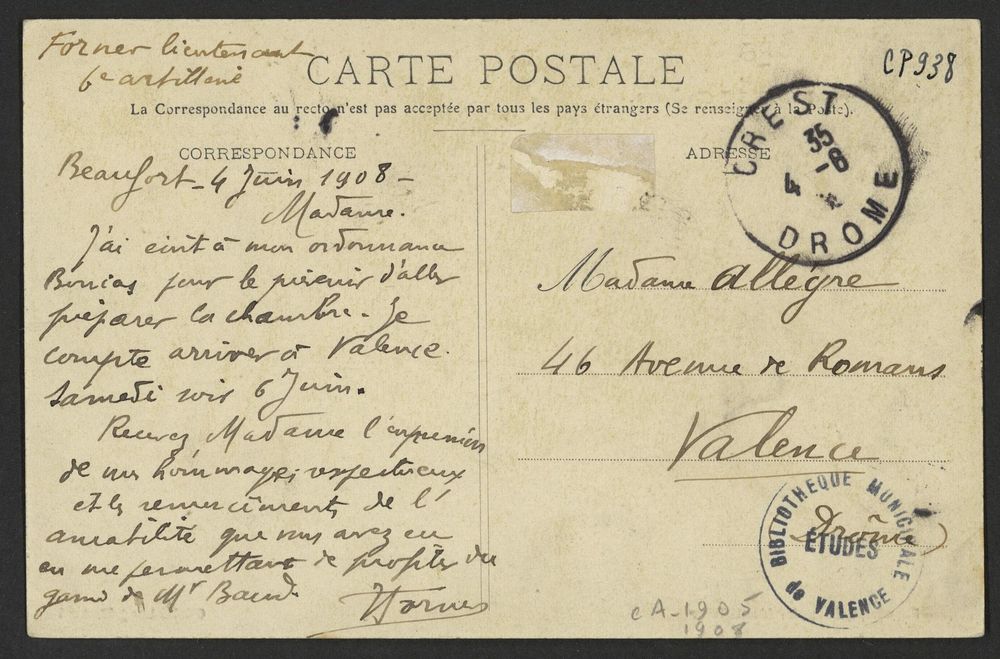 Forner lieutenant
6e artillerie
CARTE POSTALE
CP938
La Correspondance au recto n'est pas acceptée par tous les pays étrangers (Se renseigner à la Poste).
CORRESPONDANCE
ADRESSE
CREST
35
4 - 6
DROME
Beaufort - 4 Juin 1908 -
Madame.
J'ai écrit à mon ordonnance
pour le prévenir d'aller
préparer la chambre. Je
compte arriver à Valence
Samedi soir 6 Juin.
Recevez Madame l'expression
de mes hommages respectueux
et les remerciements de l'
amabilité que vous avez eu
en me permettant de profiter du
de Mr
Forner
Madame Allègre
46 Avenue de Romans
Valence
Drôme
BIBLIOTHEQUE MUNICIPALE
ETUDES
de VALENCE
CA-1905
1908